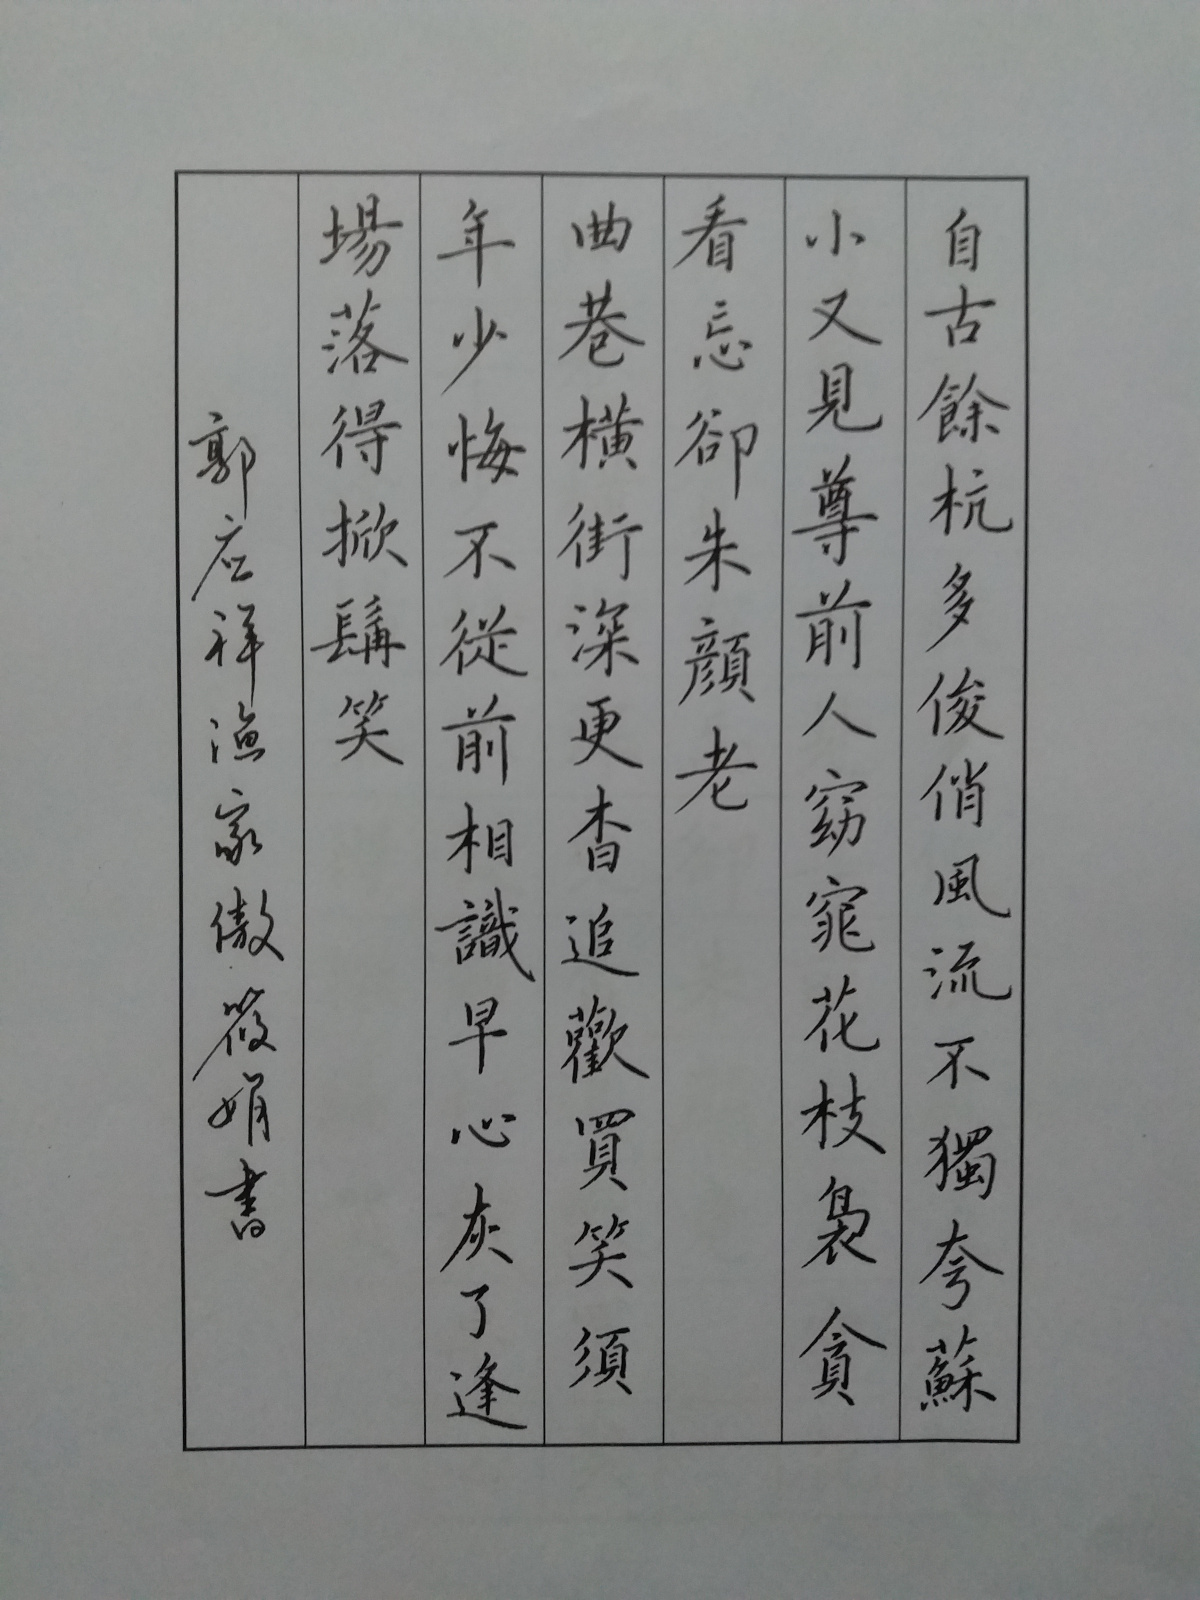 自古餘杭多俊俏風流不獨夸蘇
小又見尊前人窈窕花枝袅貪
看忘卻朱顔老
曲巷橫街深更杳追歡買笑須
年少悔不從前相識早心灰了逢
場落得掀髯笑
郭应祥渔家傲筱娟書